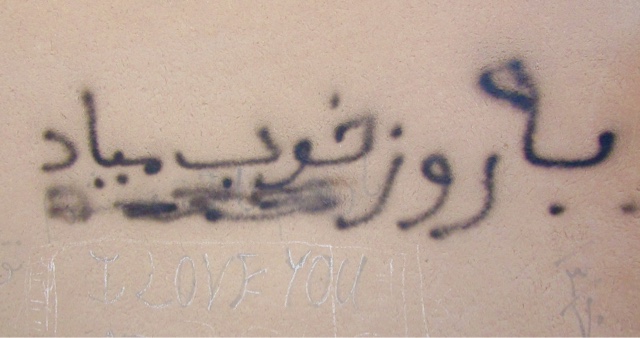 یه روز خوب میاد
I LOVE YOU